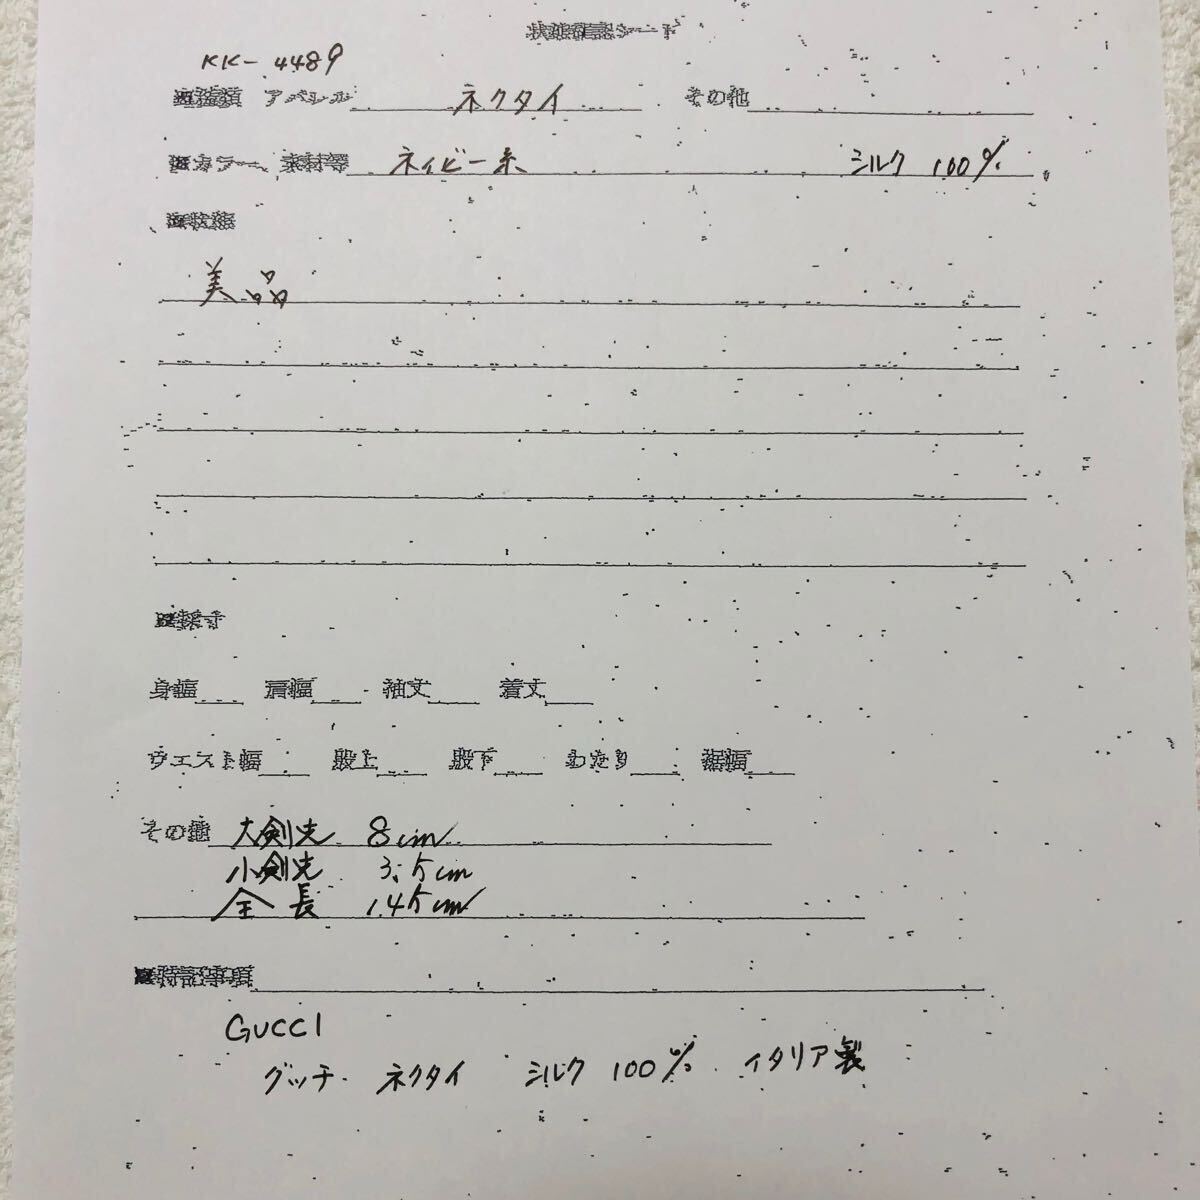 状態確認シート
KK-4489
■種類 アパレル ネクタイ その他
■カラー、素材等 ネイビー系 シルク 100%
■状態
美品
■採寸
身幅 肩幅 袖丈 着丈
ウエスト幅 股上 股下 わたり 裾幅
その他 大剣先 8cm
小剣先 3.5cm
全長 145cm
■特記事項
GUCCI
グッチ ネクタイ シルク 100% イタリア製